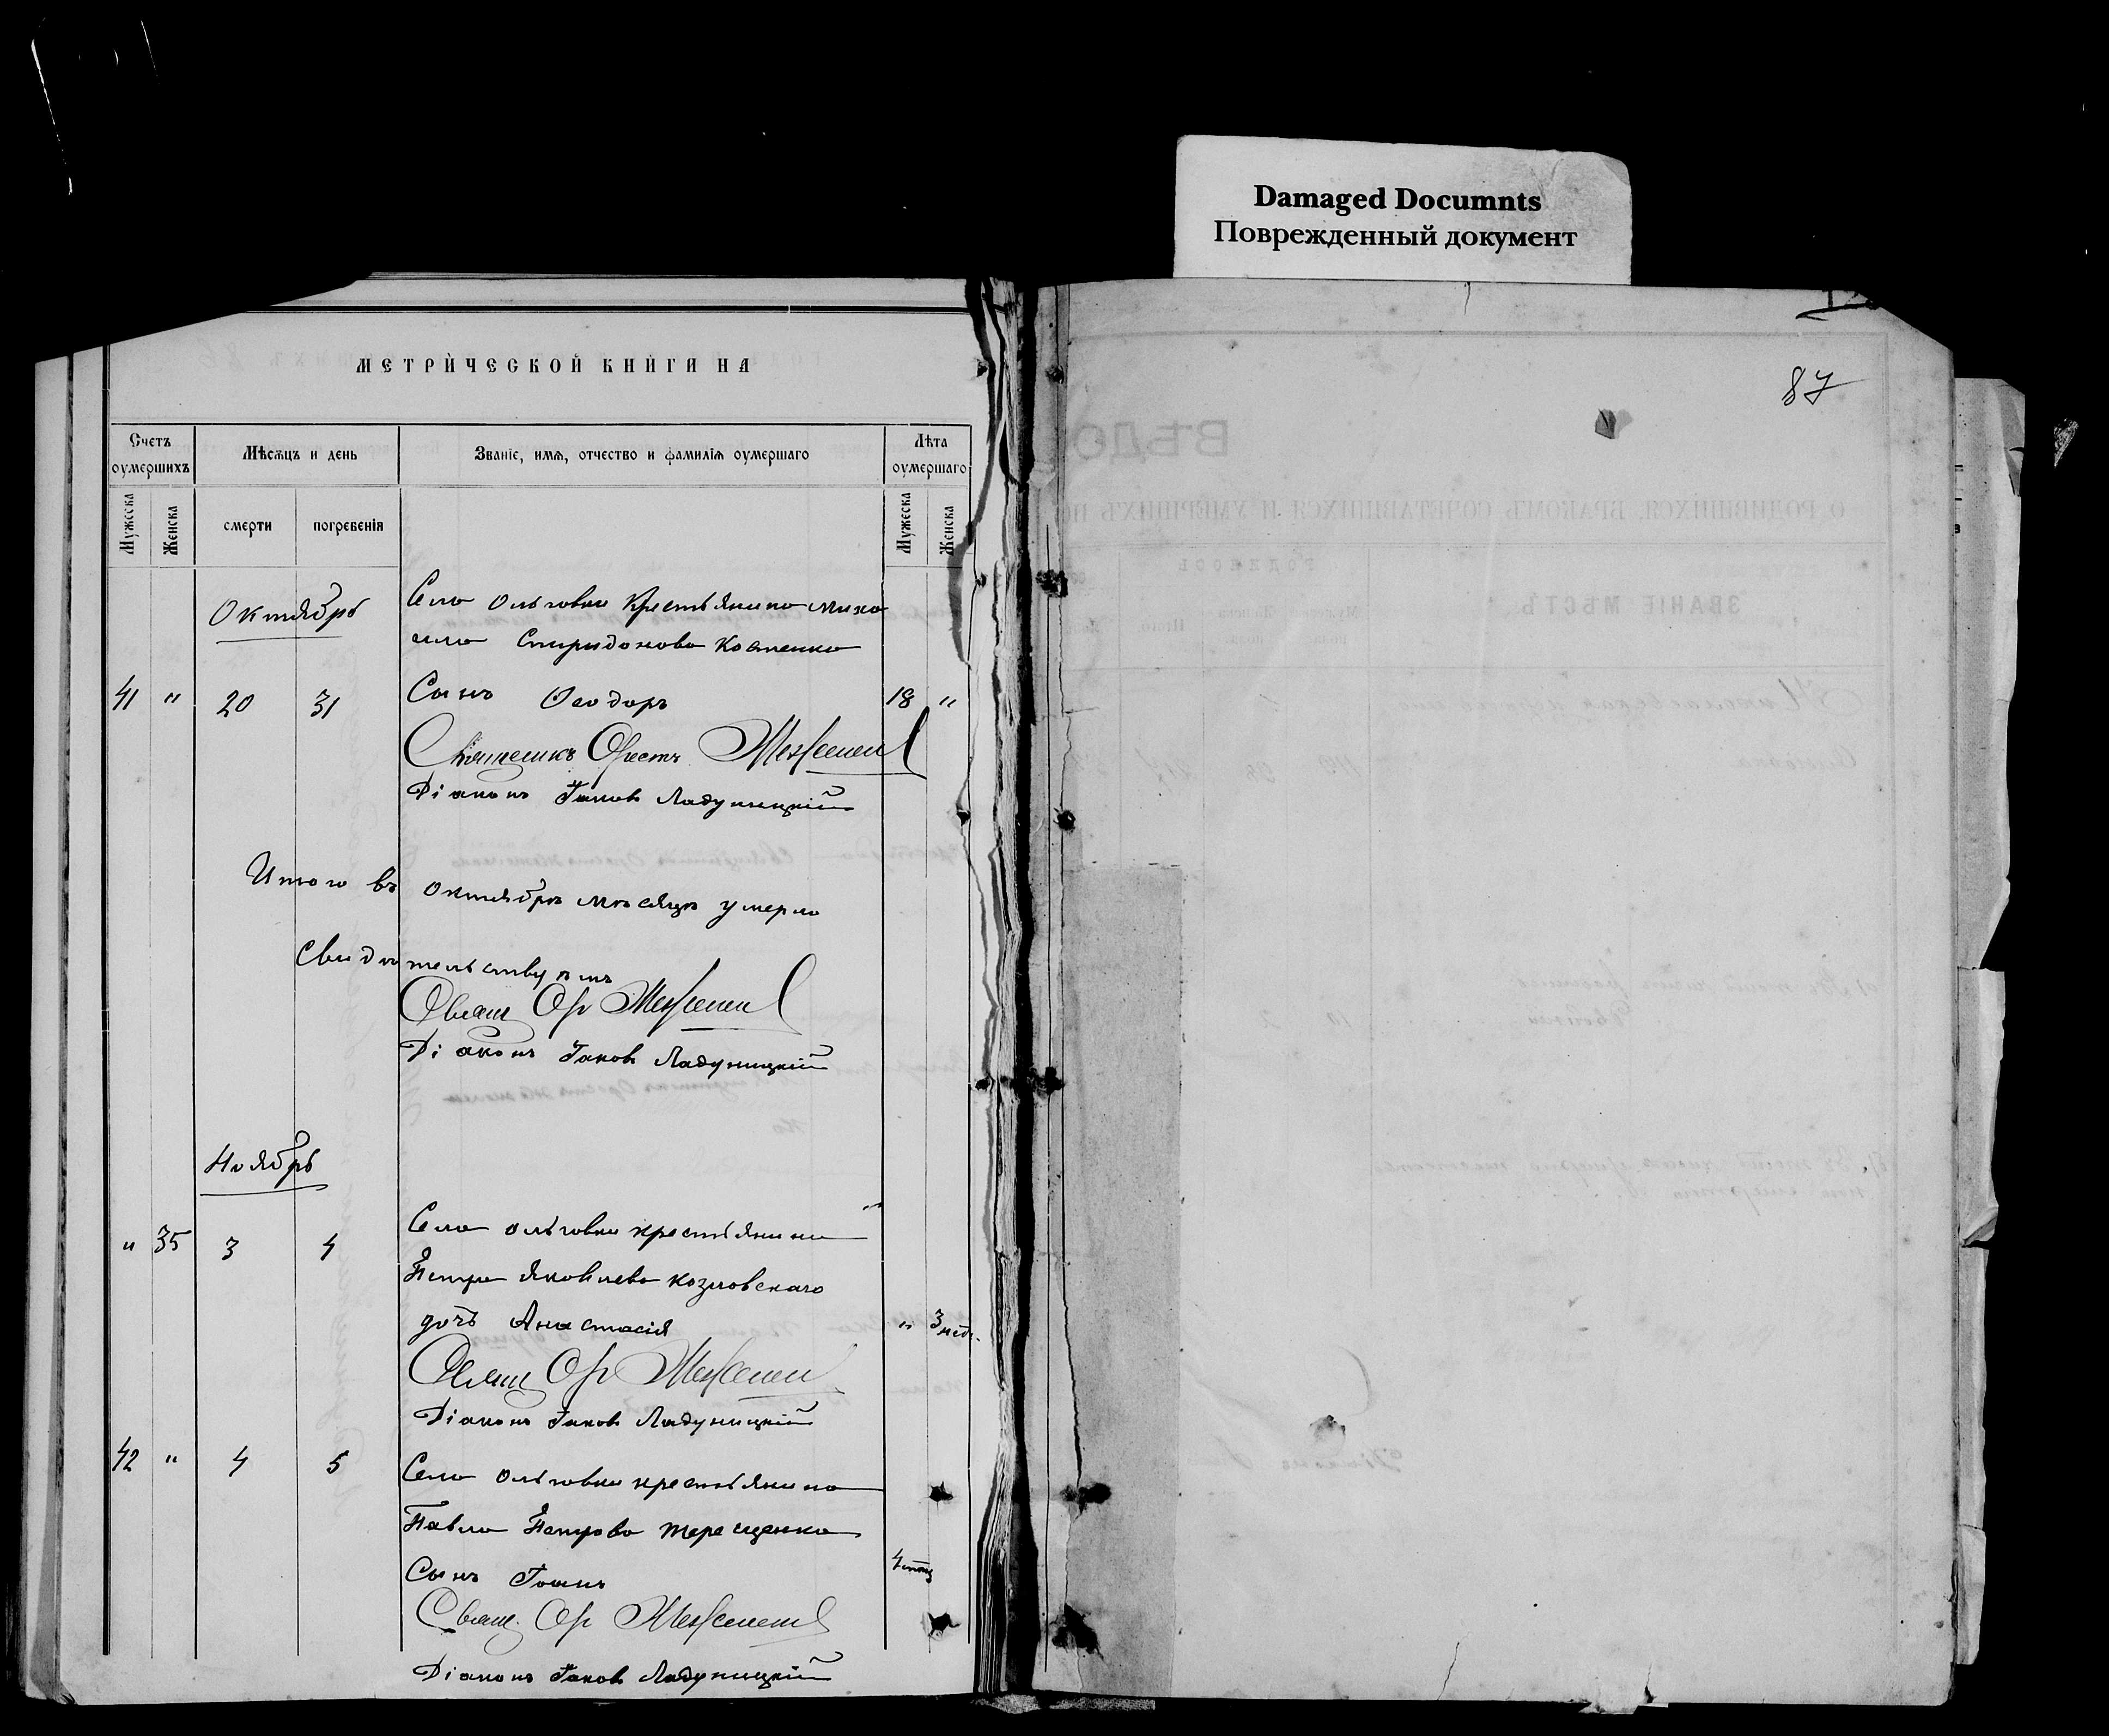 Damaged Documnts
Поврежденный документ
МЕТРИЧЕСКОЙ КНИГИ НА
87
Счетъ оумершихъ
Мѣсѧцъ и день
Званіе, имѧ, отчество и фамиліѧ оумершаго
Лѣта оумершаго
Мужеска
Женска
смерти
погребенія
Мужеска
Женска
Октябрь
Села Ольговки крестьянина Миха
ила Спиридонова Костенко
41 " 20 31 Сынъ Ѳеодоръ 18 "
Священикъ Орестъ
Діаконъ Іаковъ Ладуницкій
Итого въ октябрѣ мѣсяцѣ умерло
Свидѣтельствуемъ
Свящ Ор
Діаконъ Іаковъ Ладуницкій
Ноябрь
" 35 3 4 Села Ольговки крестьянина
Петра Яковлева Козловскаго
дочь Анастасія " 3 нед.
Свящ Ор
Діаконъ Іаковъ Ладуницкій
42 " 4 5 Села Ольговки крестьянина
Павла Петрова Терещенка
Сынъ Іоанъ 4
Свящ. Ор
Діаконъ Іаковъ Ладуницкій
ВѢДО
О РОДИВШИХСЯ, БРАКОМЪ СОЧЕТАВШИХСЯ И УМЕРШИХЪ ПО
ЗВАНІЕ МѢСТЪ.